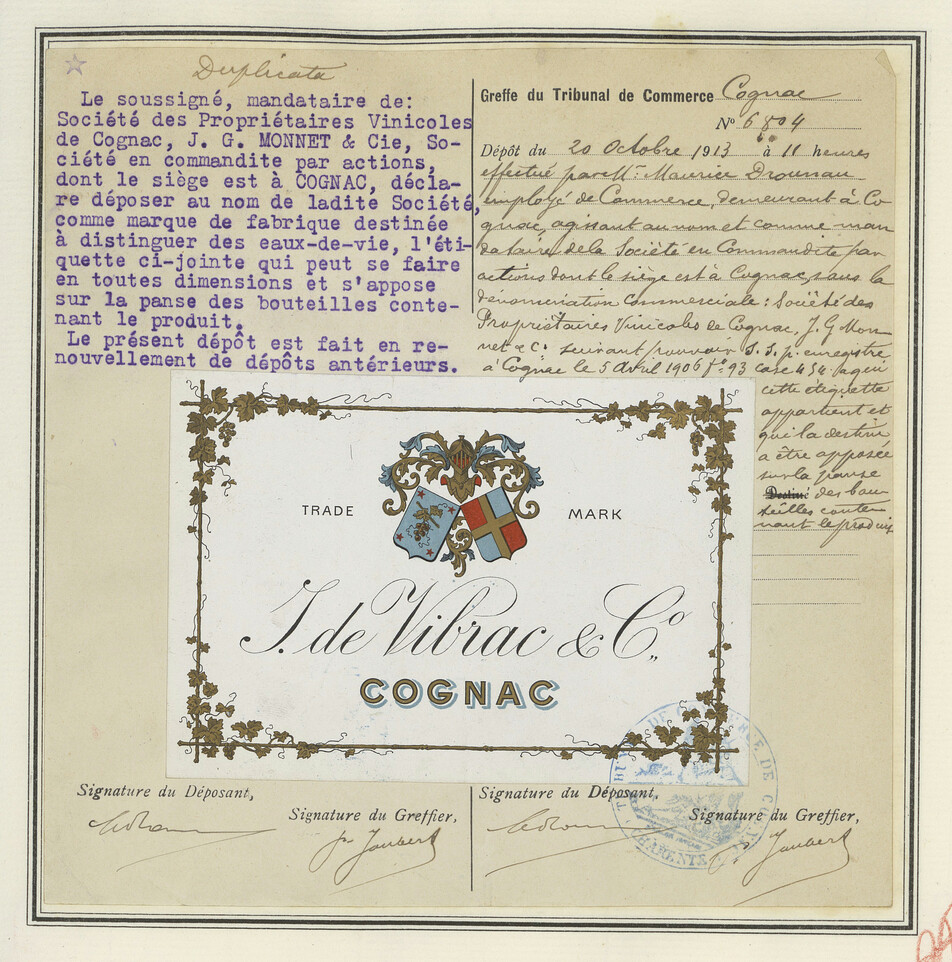 Duplicata
Le soussigné, mandataire de:
Société des Propriétaires Vinicoles
de Cognac, J. G. MONNET & Cie, So-
ciété en commandite par actions,
dont le siège est à COGNAC, décla-
re déposer au nom de ladite Société,
comme marque de fabrique destinée
à distinguer des eaux-de-vie, l'éti-
quette ci-jointe qui peut se faire
en toutes dimensions et s'appose
sur la panse des bouteilles conte-
nant le produit.
Le présent dépôt est fait en re-
nouvellement de dépôts antérieurs.
Greffe du Tribunal de Commerce Cognac
N° 6804
Dépôt du 20 Octobre 1913 à 11 heures
effectué par Mr. Maurice Drounau
employé de Commerce, demeurant à Co
gnac, agissant au nom et comme man
dataire de la Société en Commandite par
actions dont le siège est à Cognac, sous la
dénomination commerciale: Société des
Propriétaires Vinicoles de Cognac, J. G Mon-
net & Cie suivant pouvoir S. S. p. enregistré
à Cognac le 5 Avril 1906 fo 93 case 454
cette étiquette
appartient et
qui la destine
a être apposée
sur la panse
Destiné des bou
teilles conte
nant le produit
TRADE MARK
J. de Vibrac & Co.
COGNAC
TRIBUNAL DE COMMERCE DE COGNAC
CHARENTE
Signature du Déposant,
Signature du Greffier,
Jaubert
Signature du Déposant,
Signature du Greffier,
Jaubert